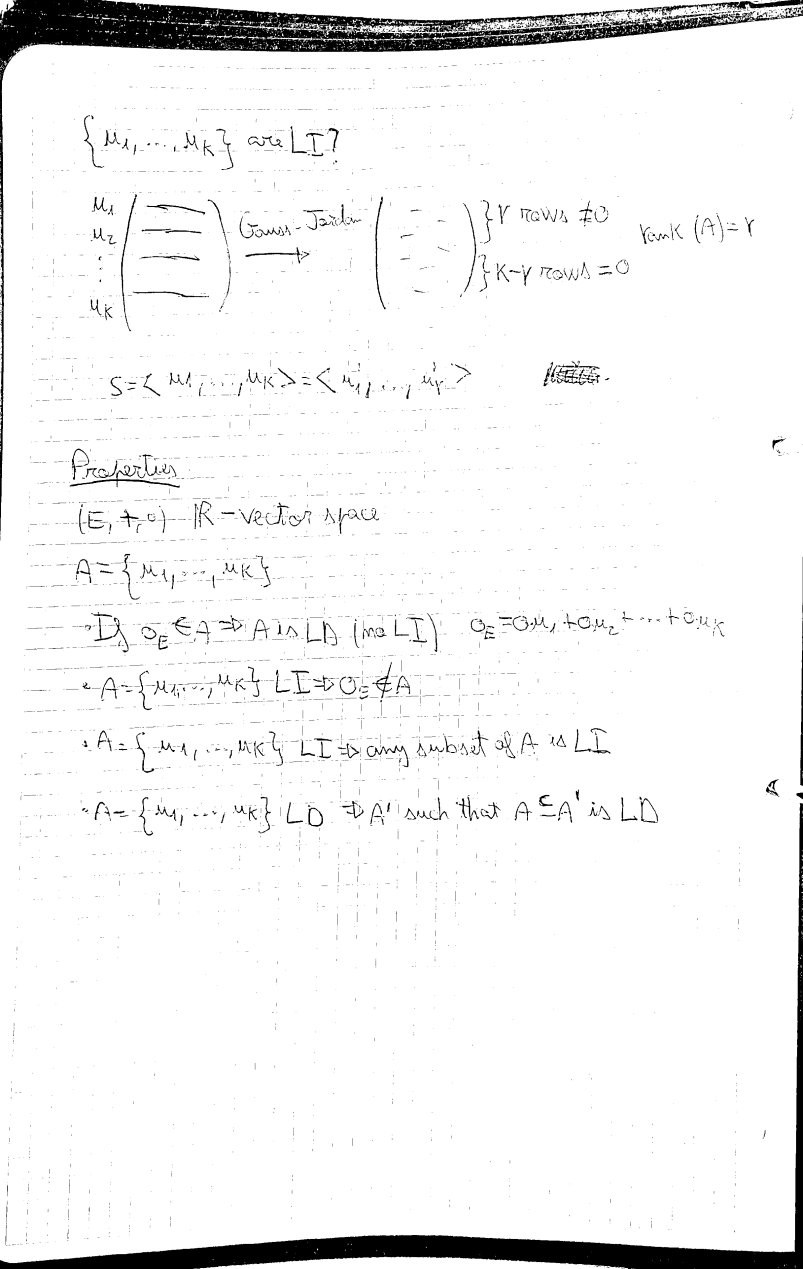 {u1, ..., uK} are LI?
u1
u2
⋮
uK
Gauss-Jordan →
} r rows ≠0
} K-r rows =0
rank (A)=r
S=< u1, ..., uK>=< u1', ..., ur' >
Properties
(E, +, ∘) ℝ-vector space
A={u1, ..., uK}
• If 0E ∈ A ⇒ A is LD (no LI) 0E=0·u1+0·u2+...+0·uK
• A={u1, ..., uK} LI ⇒ 0E ∉ A
• A={u1, ..., uK} LI ⇒ any subset of A is LI
• A={u1, ..., uK} LD ⇒ A' such that A ⊆ A' is LD